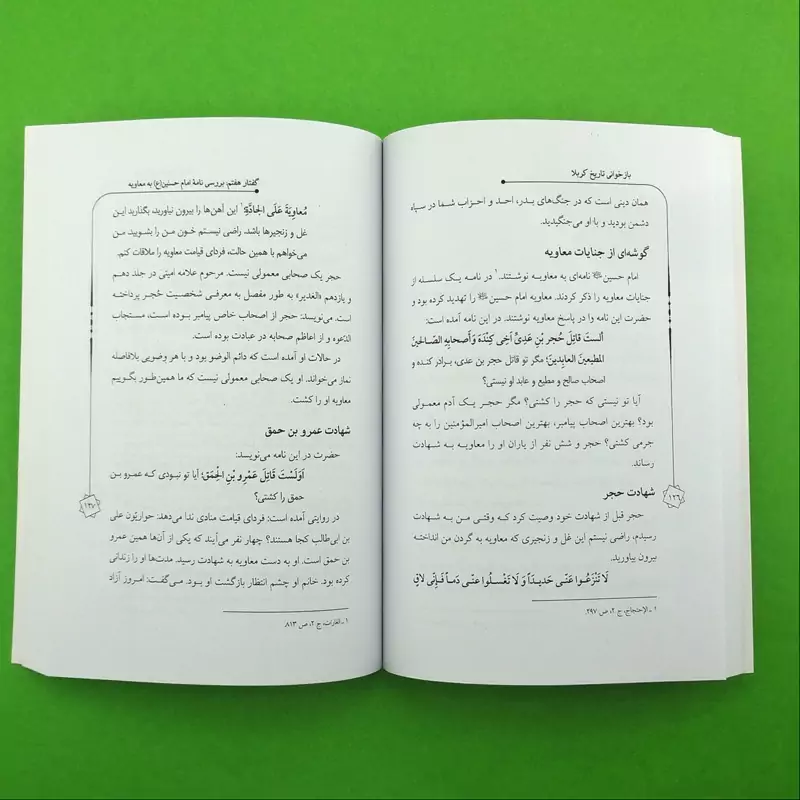 بازخوانی تاریخ کربلا
همان دینی است که در جنگ‌های بدر، احد و احزاب شما در سپاه
دشمن بودید و با او می‌جنگیدید.
گوشه‌ای از جنایات معاویه
امام حسین﷤ نامه‌ای به معاویه نوشتند.۱ در نامه یک سلسله از
جنایات معاویه را ذکر کردند. معاویه امام حسین﷤ را تهدید کرده بود و
حضرت این نامه را در پاسخ معاویه نوشتند. در این نامه آمده است:
أَلستَ قاتِلَ حُجرِ بنِ عَدِیٍّ أخِی کِندَة وَأصحابِهِ الصّالحینَ
المطیعینَ العابِدینَ؛ مگر تو قاتل حجر بن عدی، برادر کنده و
اصحاب صالح و مطیع و عابد او نیستی؟
آیا تو نیستی که حجر را کشتی؟ مگر حجر یک آدم معمولی
بود؟ بهترین اصحاب پیامبر، بهترین اصحاب امیرالمؤمنین را به چه
جرمی کشتی؟ حجر و شش نفر از یاران او را معاویه به شهادت
رساند.
شهادت حجر
حجر قبل از شهادت خود وصیت کرد که وقتی من به شهادت
رسیدم، راضی نیستم این غل و زنجیری که معاویه به گردن من انداخته
بیرون بیاورید.
لَا تَنْزَعُوا عَنّی حَدیداً وَ لَا تَغْسلُوا عنّی دَماً فَإنّی لاقٍ
۱ ـ الإحتجاج، ج ۲، ص ۲۹۷.
۱۲۶
گفتار هفتم، بررسی نامهٔ امام حسین(ع) به معاویه
مُعاوِیَةَ عَلَی الجادَّةِ؛۱ این آهن‌ها را بیرون نیاورید، بگذارید این
غل و زنجیرها باشد، راضی نیستم خون من را بشویید. من
می‌خواهم با همین حالت، فردای قیامت معاویه را ملاقات کنم.
حجر یک صحابی معمولی نیست. مرحوم علامه امینی در جلد دهم
و یازدهم «الغدیر» به طور مفصل به معرفی شخصیت حُجر پرداخته
است. می‌نویسد: حجر از اصحاب خاص پیامبر بوده است، مستجاب
الدّعوه و از اعاظم صحابه در عبادت بوده است.
در حالات او آمده است که دائم الوضو بود و با هر وضویی بلافاصله
نماز می‌خواند. او یک صحابی معمولی نیست که ما همین‌طور بگوییم
معاویه او را کشت.
شهادت عمرو بن حمق
حضرت در این نامه می‌نویسد:
اَوَلَسْتَ قَاتِلَ عَمْرِو بْنِ الحَمِقَ؛ آیا تو نبودی که عمرو بن
حمق را کشتی؟
در روایتی آمده است: فردای قیامت منادی ندا می‌دهد: حواریّون علی
بن ابی‌طالب کجا هستند؟ چهار نفر می‌آیند که یکی از آن‌ها همین عمرو
بن حمق است. او به دست معاویه به شهادت رسید. مدت‌ها او را زندانی
کرده بود. خانم او چشم انتظار بازگشت او بود. می‌گفت: امروز آزاد
۱ ـ الغارات، ج ۲، ص ۸۱۳.
۱۲۷